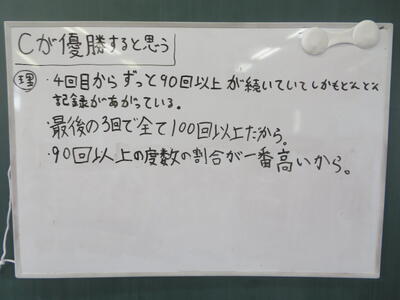 Cが優勝すると思う
理 ・4回目からずっと90回以上が続いていてしかもどんどん
記録があがっている。
・最後の3回で全て100回以上だから。
・90回以上の度数の割合が一番高いから。